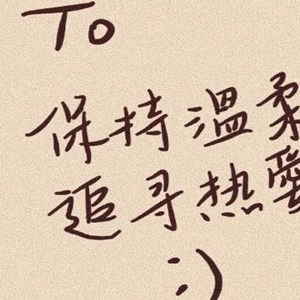 To
保持溫柔
追寻热愛
:)